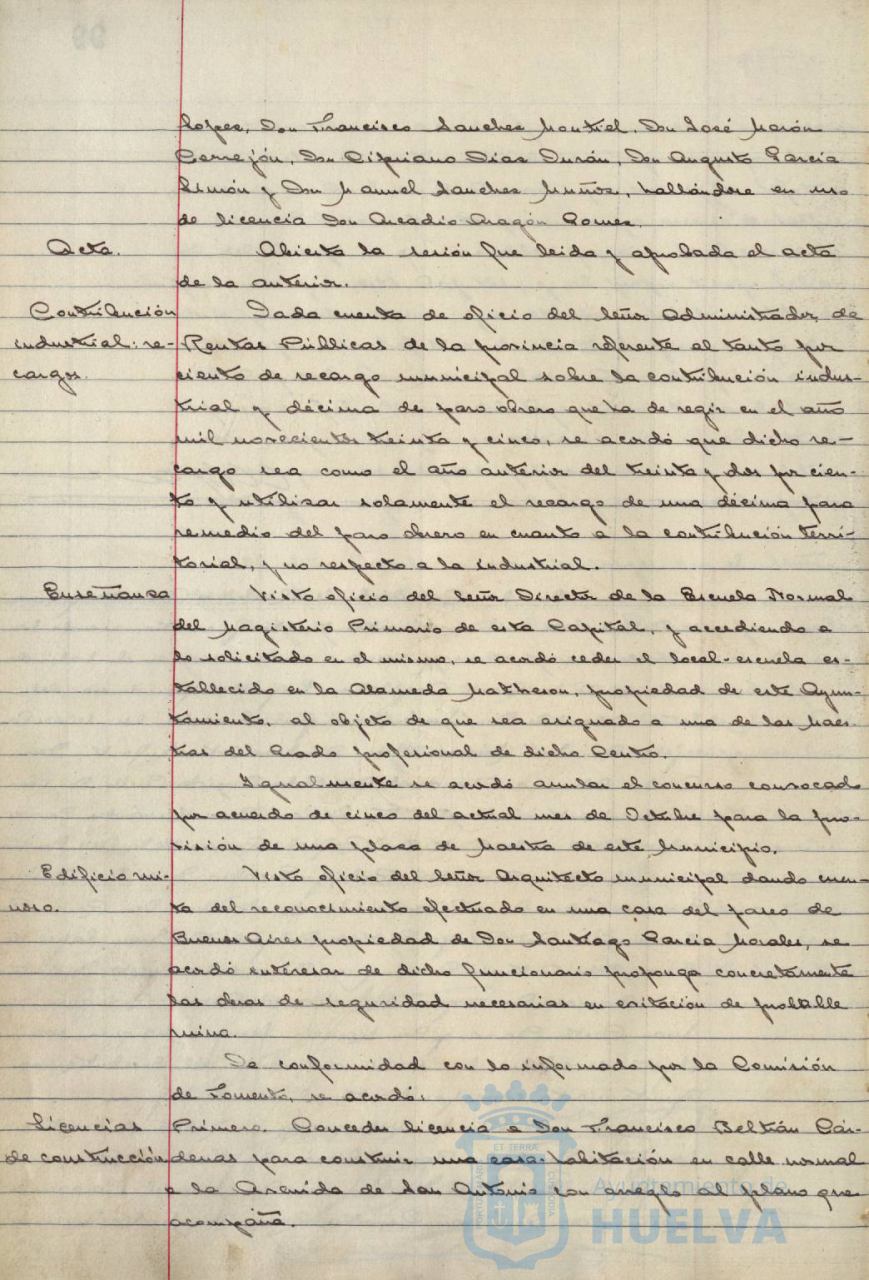 Lopez, Don Francisco Sanchez Montiel, Don José Marón
Cerrejón, Don Cipriano Dias Durán, Don Augusto García
Simón y Don Manuel Sanchez Muñoz, hallándose en uso
de licencia Don Arcadio Aragón Gomez.
Acta.
Abierta la sesión fue leida y aprobada el acta
de la anterior.
Contribución
industrial: re-
cargos.
Dada cuenta de oficio del Señor Administrador de
Rentas Públicas de la provincia referente al tanto por
ciento de recargo municipal sobre la contribución indus-
trial y décima de paro obrero que ha de regir en el año
mil novecientos treinta y cinco, se acordó que dicho re-
cargo sea como el año anterior del treinta y dos por cien-
to y utilizar solamente el recargo de una décima para
remedio del paro obrero en cuanto a la contribución terri-
torial, y no respecto a la industrial.
Enseñanza
Visto oficio del Señor Director de la Escuela Normal
del Magisterio Primario de esta Capital, y accediendo a
lo solicitado en el mismo, se acordó ceder el local-escuela es-
tablecido en la Alameda Matheson, propiedad de este Ayun-
tamiento, al objeto de que sea asignado a una de las Maes-
tras del Grado profesional de dicho Centro.
Igualmente se acordó anular el concurso convocado
por acuerdo de cinco del actual mes de Octubre para la pro-
visión de una plaza de Maestra de este Municipio.
Edificio rui-
noso.
Visto oficio del Señor Arquitecto municipal dando cuen-
ta del reconocimiento efectuado en una casa del paseo de
Buenos Aires propiedad de Don Santiago García Morales, se
acordó interesar de dicho funcionario proponga concretamente
las obras de seguridad necesarias en evitación de probable
ruina.
De conformidad con lo informado por la Comisión
de Fomento, se acordó:
Licencias
de construcción
Primero. Conceder licencia a Don Francisco Beltrán Cár-
denas para construir una casa-habitación en calle normal
a la Avenida de San Antonio con arreglo al plano que
acompaña.
Ayuntamiento de
HUELVA